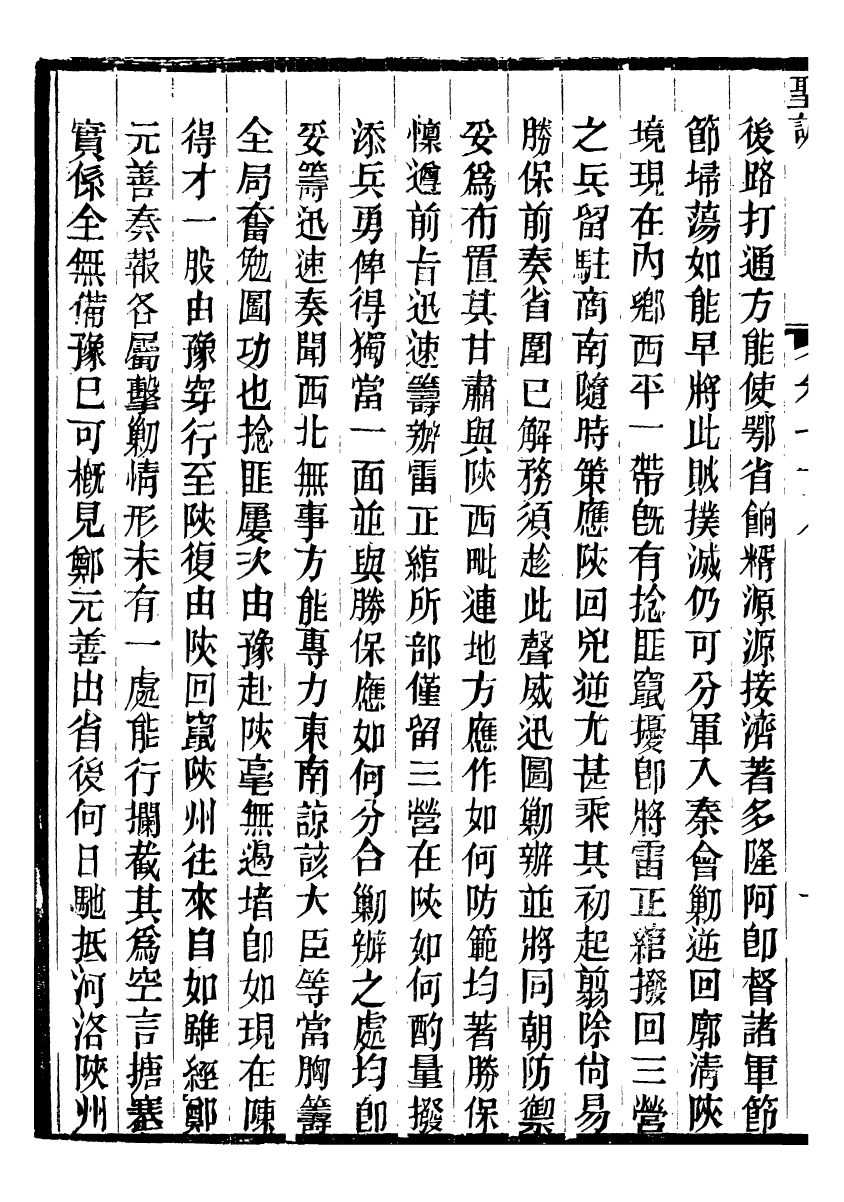 聖訓
後路打通方能使鄂省餉糈源源接濟著多隆阿卽督諸軍節
節埽蕩如能早將此賊撲滅仍可分軍入秦會勦逆回廓淸陝
境現在內鄉西平一帶旣有捻匪竄擾卽將雷正綰撥回三營
之兵留駐商南隨時策應陝回兇逆尤甚乘其初起翦除尙易
勝保前奏省圍已解務須趁此聲威迅圖勦辦並將同朝防禦
妥爲布置其甘肅與陝西毗連地方應作如何防範均著勝保
懍遵前旨迅速籌辦雷正綰所部僅留三營在陝如何酌量撥
添兵勇俾得獨當一面並與勝保應如何分合勦辦之處均卽
妥籌迅速奏聞西北無事方能專力東南諒該大臣等當胸籌
全局奮勉圖功也捻匪屢次由豫赴陝毫無遏堵卽如現在陳
得才一股由豫穿行至陝復由陝回竄陝州往來自如雖經鄭
元善奏報各屬擊勦情形未有一處能行攔截其爲空言搪塞
實係全無備豫已可槪見鄭元善出省後何日馳抵河洛陝州